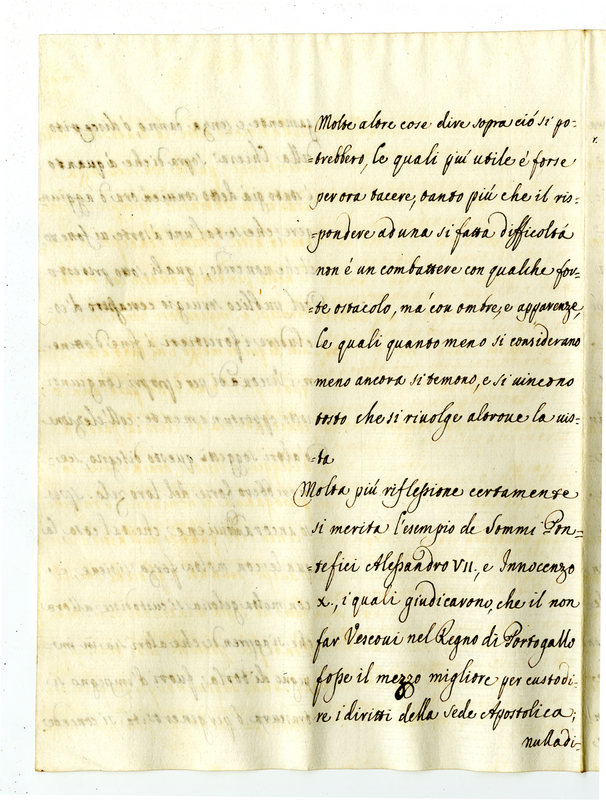 Molte altre cose dire sopra ció si po-
-trebbero, le quali piú utile é forse
per ora tacere, tanto piú che il ris-
-pondere ad una si fatta difficoltá
non é un combattere con qualche for-
-te ostacolo, má con ombre, e apparenze,
le quali quanto meno si considerano
meno ancora si temono, e si vincono
tosto che si rivolge altrove la vis-
-ta
Molta piú riflessione certamente
si merita l'esempio de Sommi Pon-
-tefici Alessandro VII., e Innocenzo
X., i quali giudicarono, che il non
far Vescovi nel Regno di Portogallo
fosse il mezzo migliore per custodi-
re i diritti della Sede Apostolica;
nulladi-